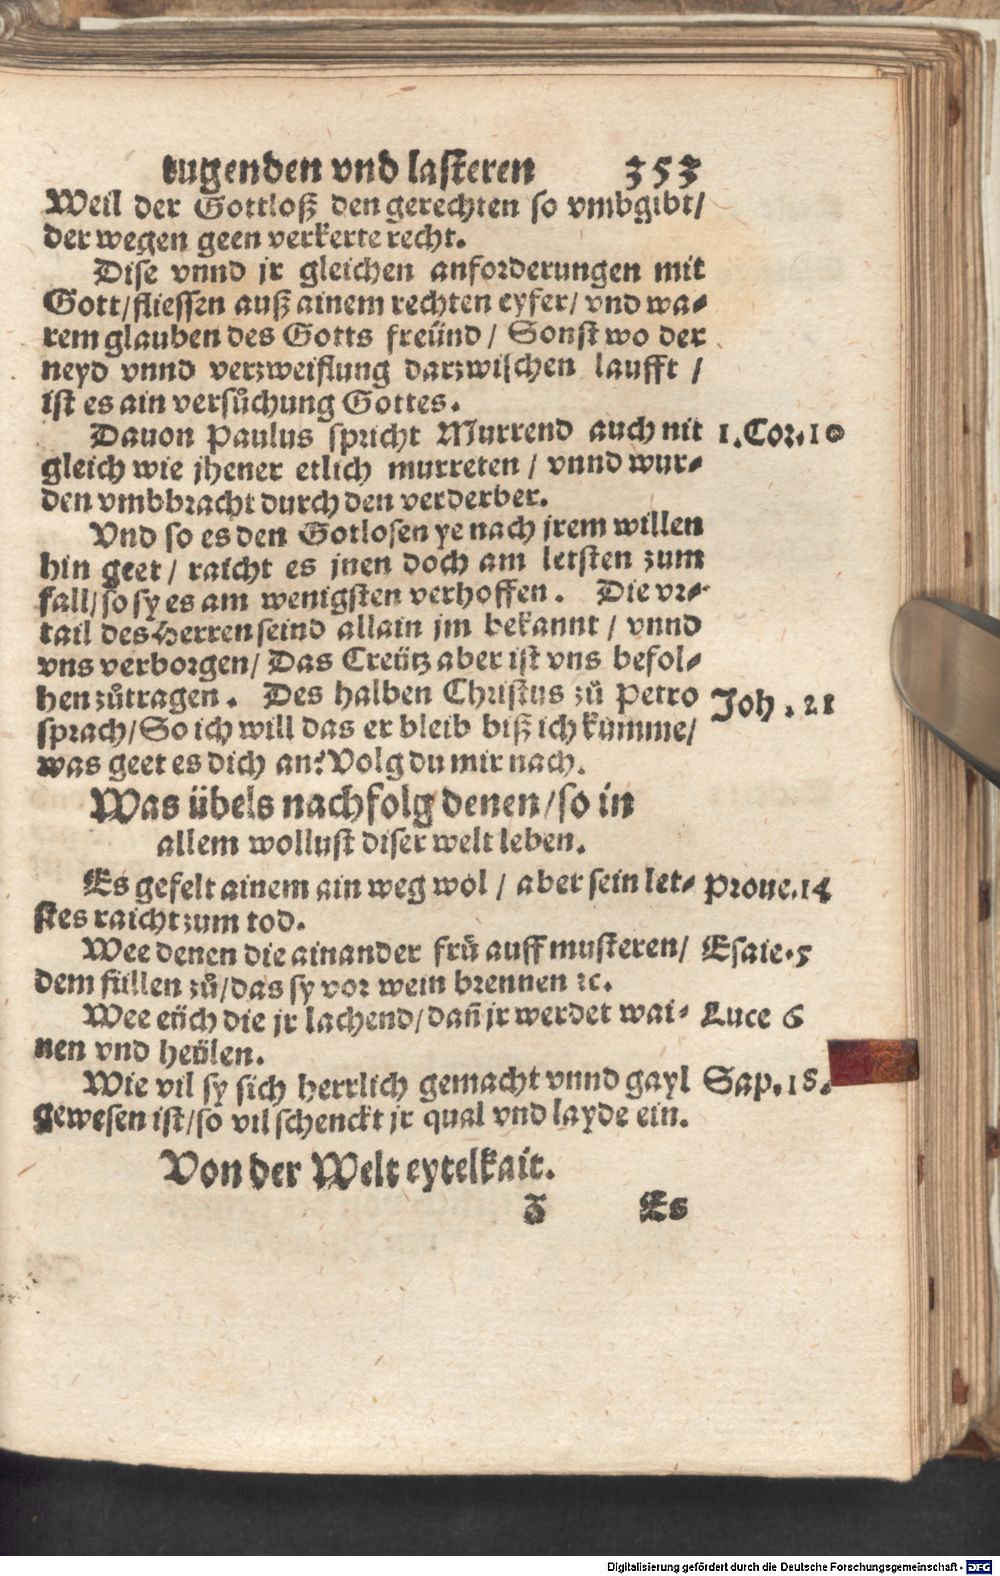 tugenden vnd lasteren 353
Weil der Gottloß den gerechten so vmbgibt/
der wegen geen verkerte recht.
Dise vnnd jr gleichen anforderungen mit
Gott/fliessen auß ainem rechten eyfer/ vnd wa⸗
rem glauben des Gotts freünd / Sonst wo der
neyd vnnd verzweiflung darzwischen laufft /
ist es ain versůchung Gottes.
Dauon Paulus spricht Murrend auch nit 1.Cor.10
gleich wie jhener etlich murreten / vnnd wur⸗
den vmbbracht durch den verderber.
Vnd so es den Gotlosen ye nach jrem willen
hin geet / raicht es jnen doch am letsten zum
fall/so sy es am wenigsten verhoffen. Die vr⸗
tail des Herren seind allain jm bekannt / vnnd
vns verborgen/ Das Creütz aber ist vns befol⸗
hen zůtragen. Des halben Christus zů Petro Joh. 21
sprach/So ich will das er bleib biß ich kumme/
was geet es dich an? Volg du mir nach.
Was übels nachfolg denen/so in
allem wollust diser welt leben.
Es gefelt ainem ain weg wol / aber sein let⸗ Proue.14
stes raicht zum tod.
Wee denen die ainander frů auff musteren/ Esaie.5
dem füllen zů/das sy vor wein brennen ꝛc.
Wee eüch die jr lachend/dañ jr werdet wai⸗ Luce 6
nen vnd heülen.
Wie vil sy sich herrlich gemacht vnnd gayl Sap.18.
gewesen ist/so vil schenckt jr qual vnd layde ein.
Von der Welt eytelkait.
Z Es
Digitalisierung gefördert durch die Deutsche Forschungsgemeinschaft - DFG